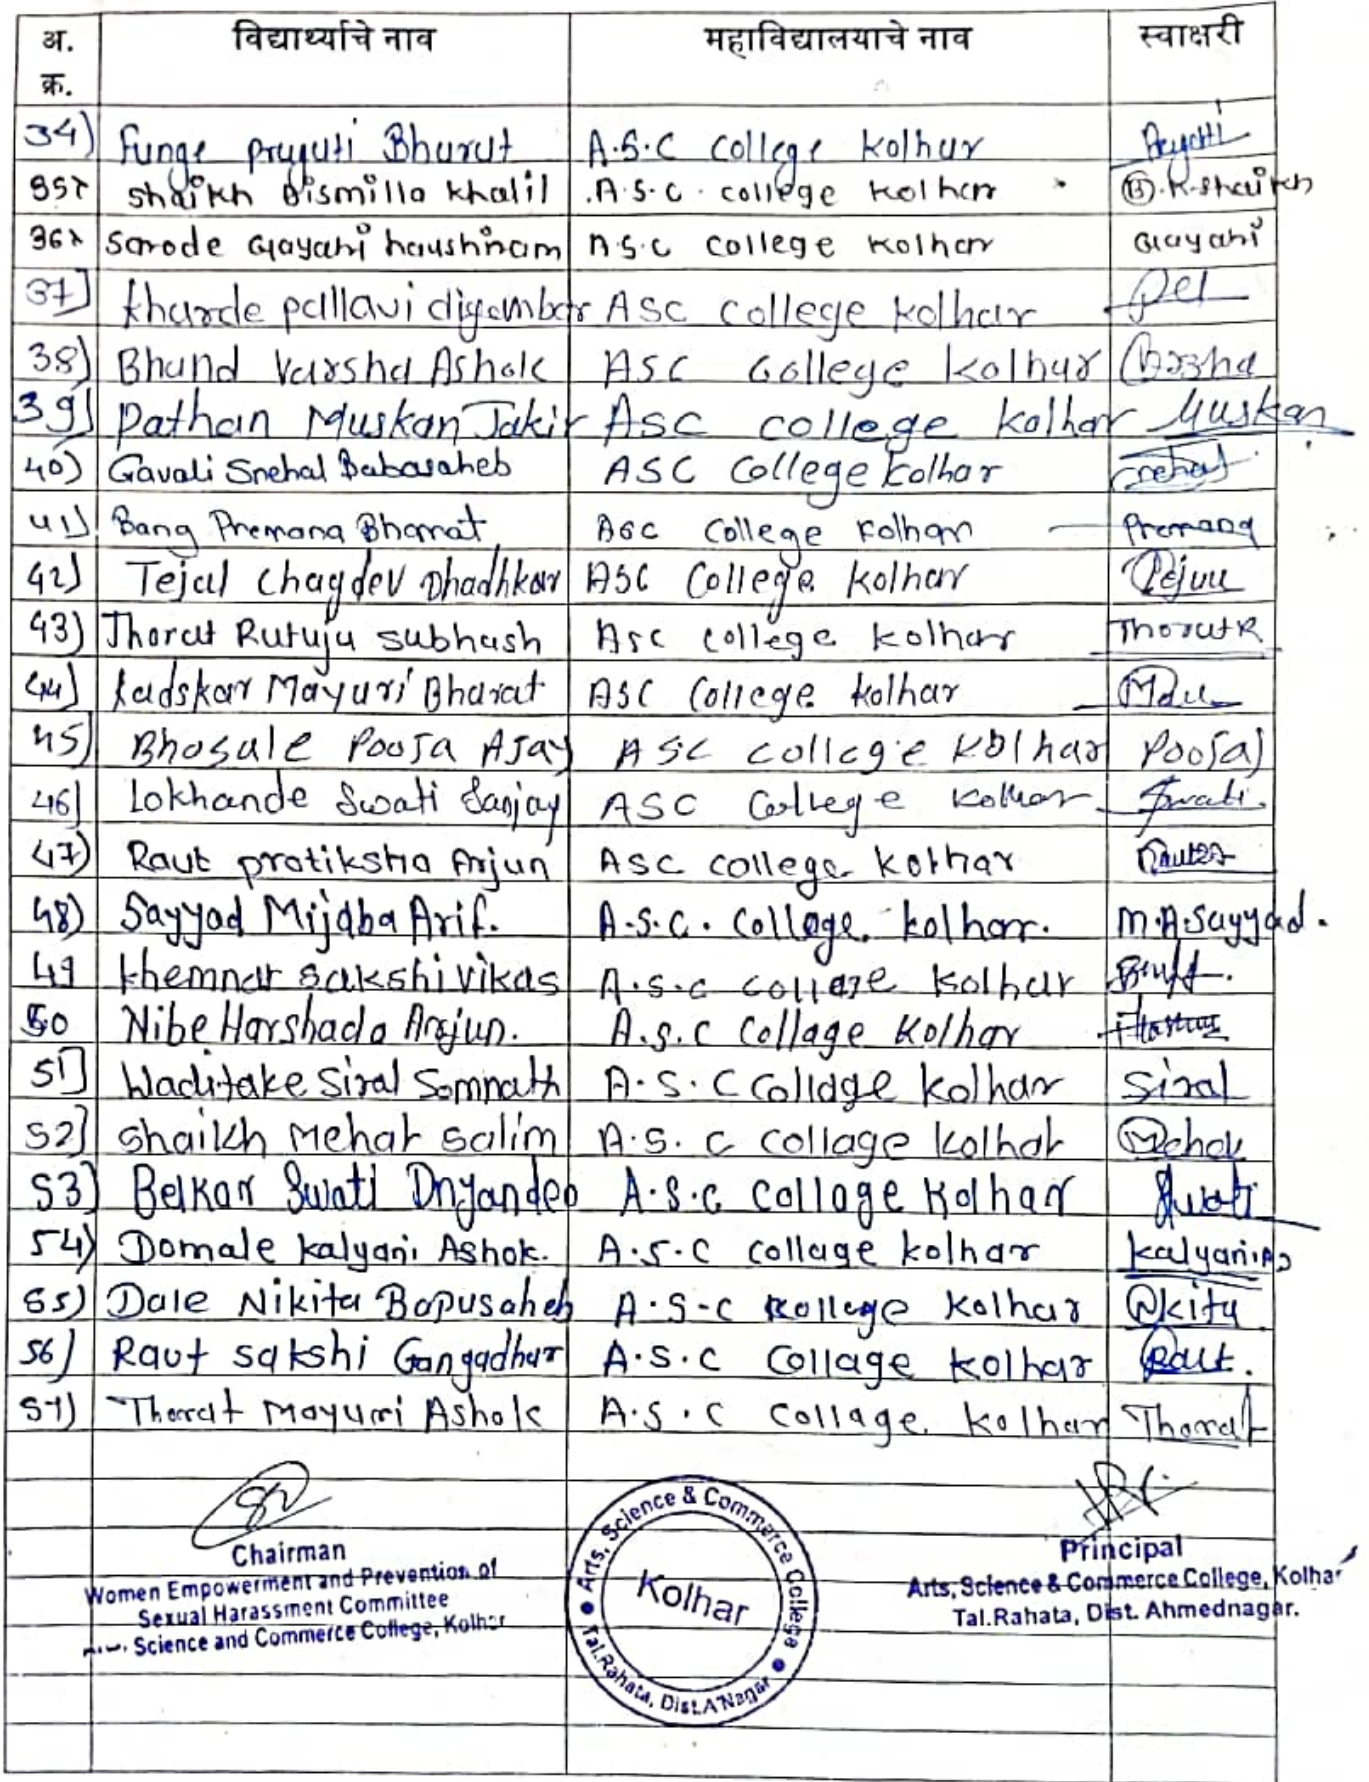 अ. क्र. विद्यार्थ्याचे नाव महाविद्यालयाचे नाव स्वाक्षरी
34) Funge prugati Bharut A.S.C college kolhar
35> shaikh Bismilla khalil .A.S.C. college kolhar B.K.shaikh
36> sarode Gayatri A.S.C college kolhar Gayatri
37] kharde pallavi digambar ASC college kolhar
38) Bhand Varsha Ashok ASC College kolhar Varsha
39) Pathan Muskan Jakir ASC college kolhar Muskan
40) Gavali Snehal Babasaheb ASC College kolhar Snehal
41) Bang Premana Bharat ASC College kolhar Premana
42) Tejal Chagdev Dhadhkar ASC College kolhar
43) Thorat Rutuja subhash Asc college kolhar Thorat R
44) kadskar Mayuri Bharat ASC College kolhar
45) Bhosale Pooja Ajay ASC college kolhar Pooja
46] Lokhande Swati Sanjay ASC College kolhar Swati.
47) Raut pratiksha Arjun ASC college kolhar
48) Sayyad Mijdba Arif. A.S.C. College. kolhar. M.A.Sayyad.
49 khemnar sakshi vikas A.S.C college kolhar
50 Nibe Harshada Arjun. A.S.C Collage Kolhar
51] Waditake Siral Somnath A.S.C Collage kolhar Siral
52] shaikh Mehar salim A.S.C collage kolhar
53) Belkar Swati Dnyandeo A.S.C Collage Kolhar Swati
54) Domale kalyani Ashok. A.S.C collage kolhar kalyani.A
55) Dale Nikita Bapusaheb A.S-C kollege kolhar Nkita
56) Raut sakshi Gangadhar A.S.C Collage kolhar Raut.
57) Thorat Mayuri Ashok A.S.C Collage. kolhar Thorat
Chairman
Women Empowerment and Prevention of
Sexual Harassment Committee
Science and Commerce College, Kolhar
Arts, Science & Commerce College
Kolhar
Tal.Rahata, Dist.A'Nagar
Principal
Arts, Science & Commerce College, Kolhar
Tal.Rahata, Dist. Ahmednagar.